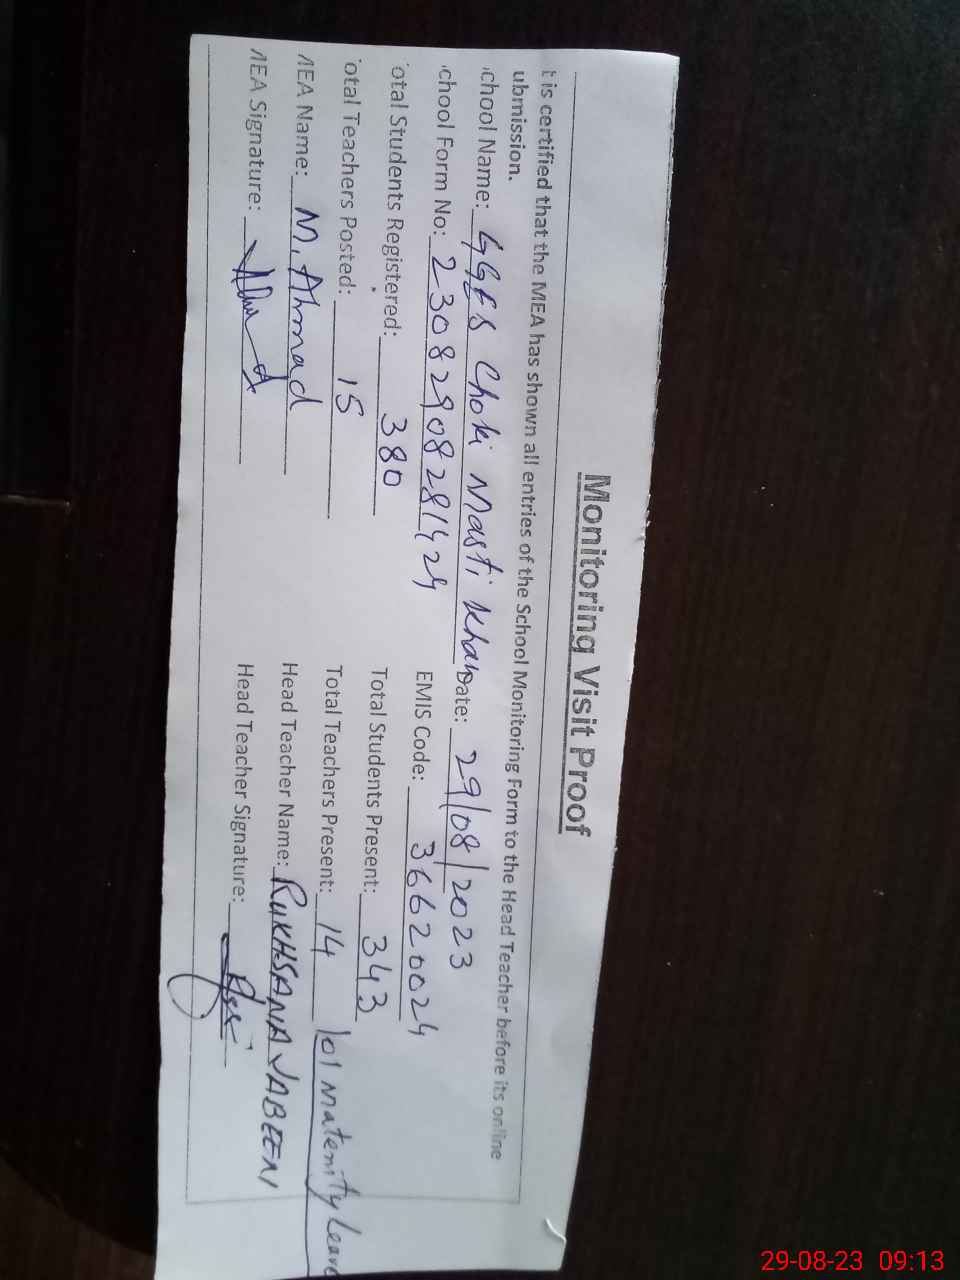 Monitoring Visit Proof
t is certified that the MEA has shown all entries of the School Monitoring Form to the Head Teacher before its online
ubmission.
chool Name: GGES Choki Masti Khan Date: 29/08/2023
chool Form No: 23082908281424 EMIS Code: 36620024
otal Students Registered: 380 Total Students Present: 343
otal Teachers Posted: 15 Total Teachers Present: 14 /01 Maternity Leave
MEA Name: M. Ahmad Head Teacher Name: RUKHSANA JABEEN
MEA Signature: Ahmad Head Teacher Signature:
29-08-23 09:13